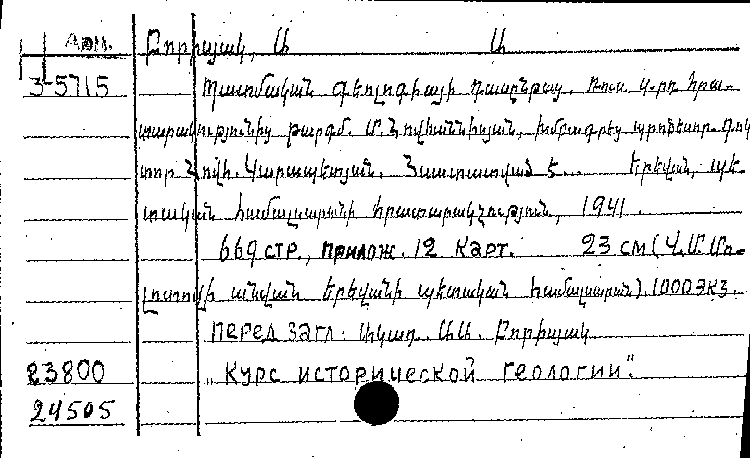 Арм. Բորիսյակ, Ա Ա
3-5715 Պատմական գեոլոգիայի դասընթաց. Ռուս 4-րդ հրա-
տարակությունից թարգմ. Մ. Հովհաննիսյան, խմբագրեց պրոֆեսոր-դոկ
տոր Հովհ. Կարապետյան. Հաստատված է... Երեվան, պե-
տական համալսարանի հրատարակչություն, 1941.
669 стр., прилож. 12 карт. 23 см (Վ. Մ. Մո-
լոտովի անվան Երեվանի պետական համալսարան). 1000 экз.
Перед загл.: Ակադ. Ա.Ա. Բորիսյակ
23800 „Курс исторической геологии".
24505